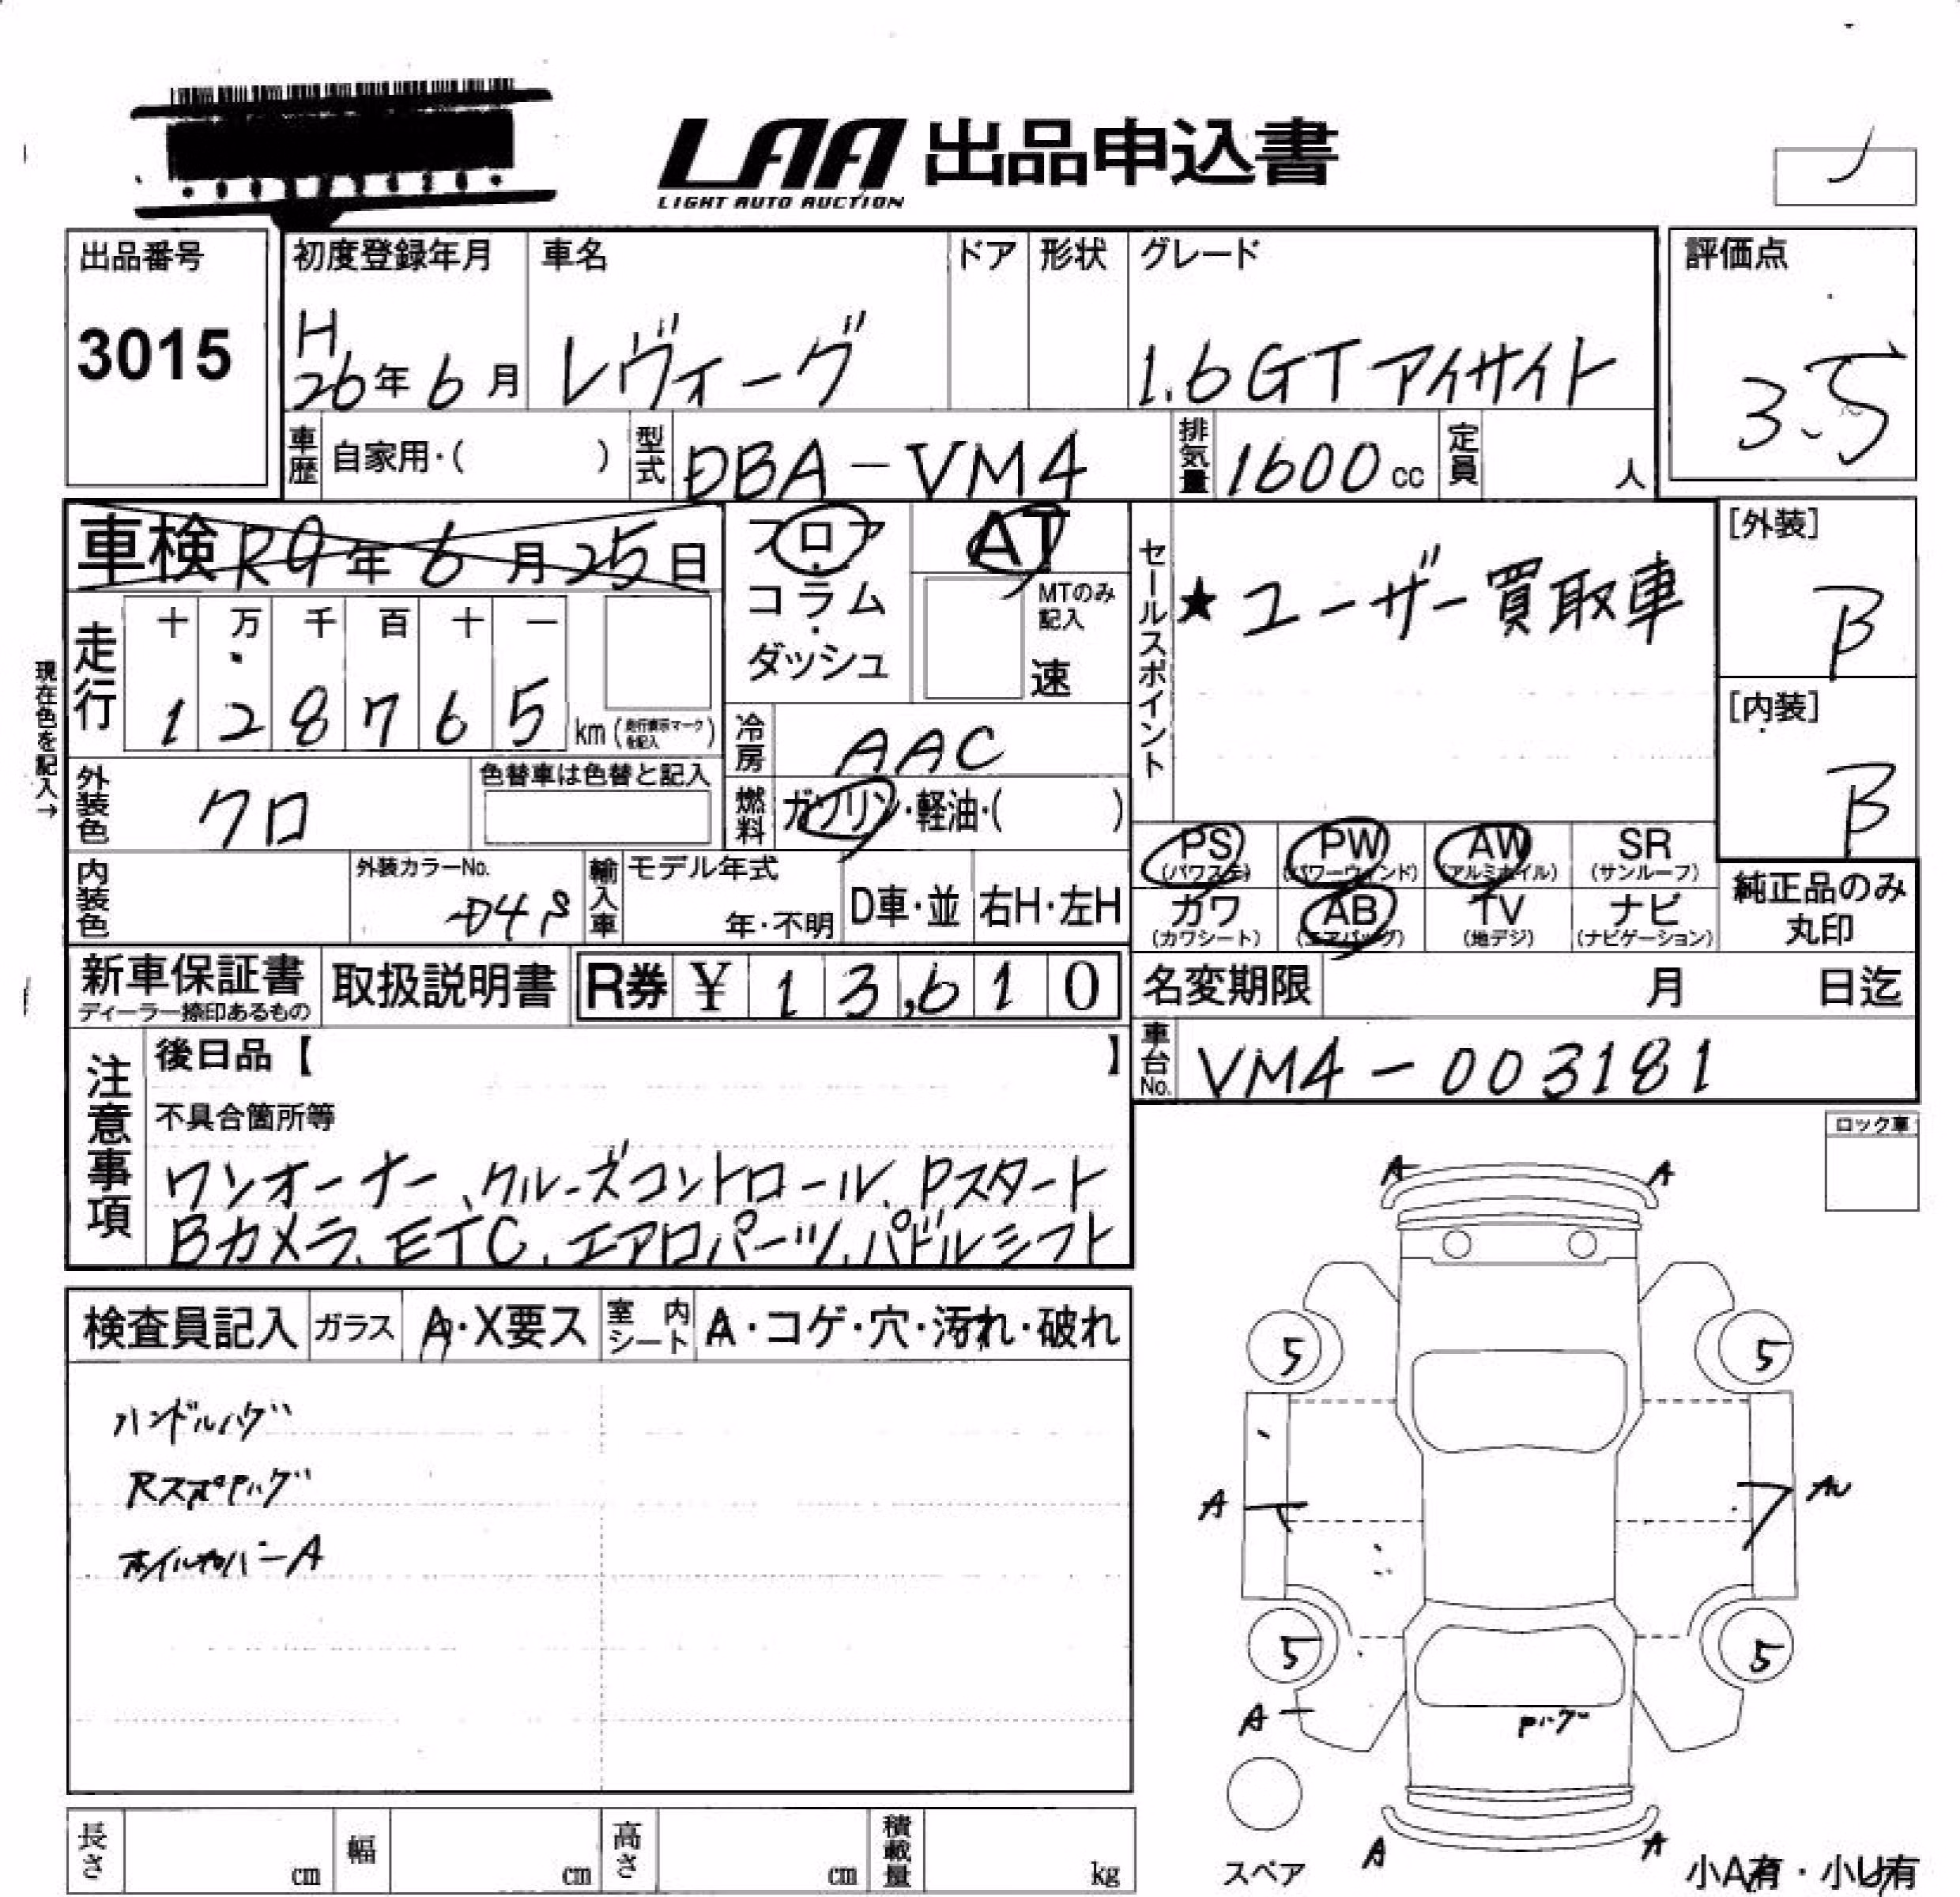 LAA 出品申込書
LIGHT AUTO AUCTION
出品番号
3015
初度登録年月
H
26年 6月
車名
レヴィーグ
ドア
形状
グレード
1.6GTアイサイト
評価点
3.5
車歴 自家用・( )
型式 DBA-VM4
排気量 1600cc
定員 人
車検 R9年 6月 25日
フロア
コラム
ダッシュ
AT
MTのみ記入
速
セールスポイント
★ユーザー買取車
[外装]
B
[内装]
B
現在色を記入→
走行
十 万 千 百 十 一
1 2 8 7 6 5 km (走行表示マークを記入)
冷房 AAC
外装色 クロ
色替車は色替と記入
燃料 ガソリン・軽油・( )
PS (パワステ)
PW (パワーウィンド)
AW (アルミホイル)
SR (サンルーフ)
カワ (カワシート)
AB (エアバッグ)
TV (地デジ)
ナビ (ナビゲーション)
純正品のみ
丸印
内装色
外装カラーNo.
D4S
輸入車
モデル年式
年・不明
D車・並
右H・左H
新車保証書
ディーラー捺印あるもの
取扱説明書
R券 ¥ 13,610
名変期限 月 日迄
車台No. VM4-003181
注意事項
後日品【 】
不具合箇所等
ワンオーナー、クルーズコントロール、Pスタート
Bカメラ、ETC、エアロパーツ、パドルシフト
ロック車
検査員記入
ガラス A・X要ス
室内シート A・コゲ・穴・汚れ・破れ
ハンドルハゲ
ホイルカバーA
A A
5 5
A
5 5
A
A A
スペア
小A有・小U有
長さ cm
幅 cm
高さ cm
積載量 kg